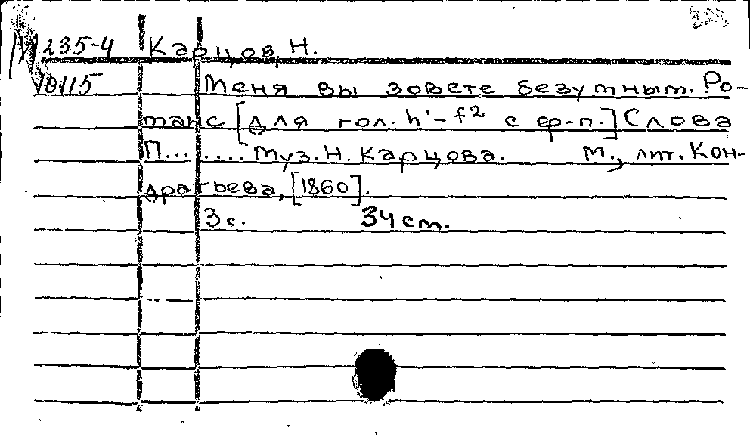 М 235-4 Карцов, Н.
Меня вы зовете безумным. Ро-
манс [для гол. h'-f² с ф-п.] Слова
П... .... муз. Н. Карцова. М., лит. Кон-
дратьева, [1860].
3 с. 34 cm.